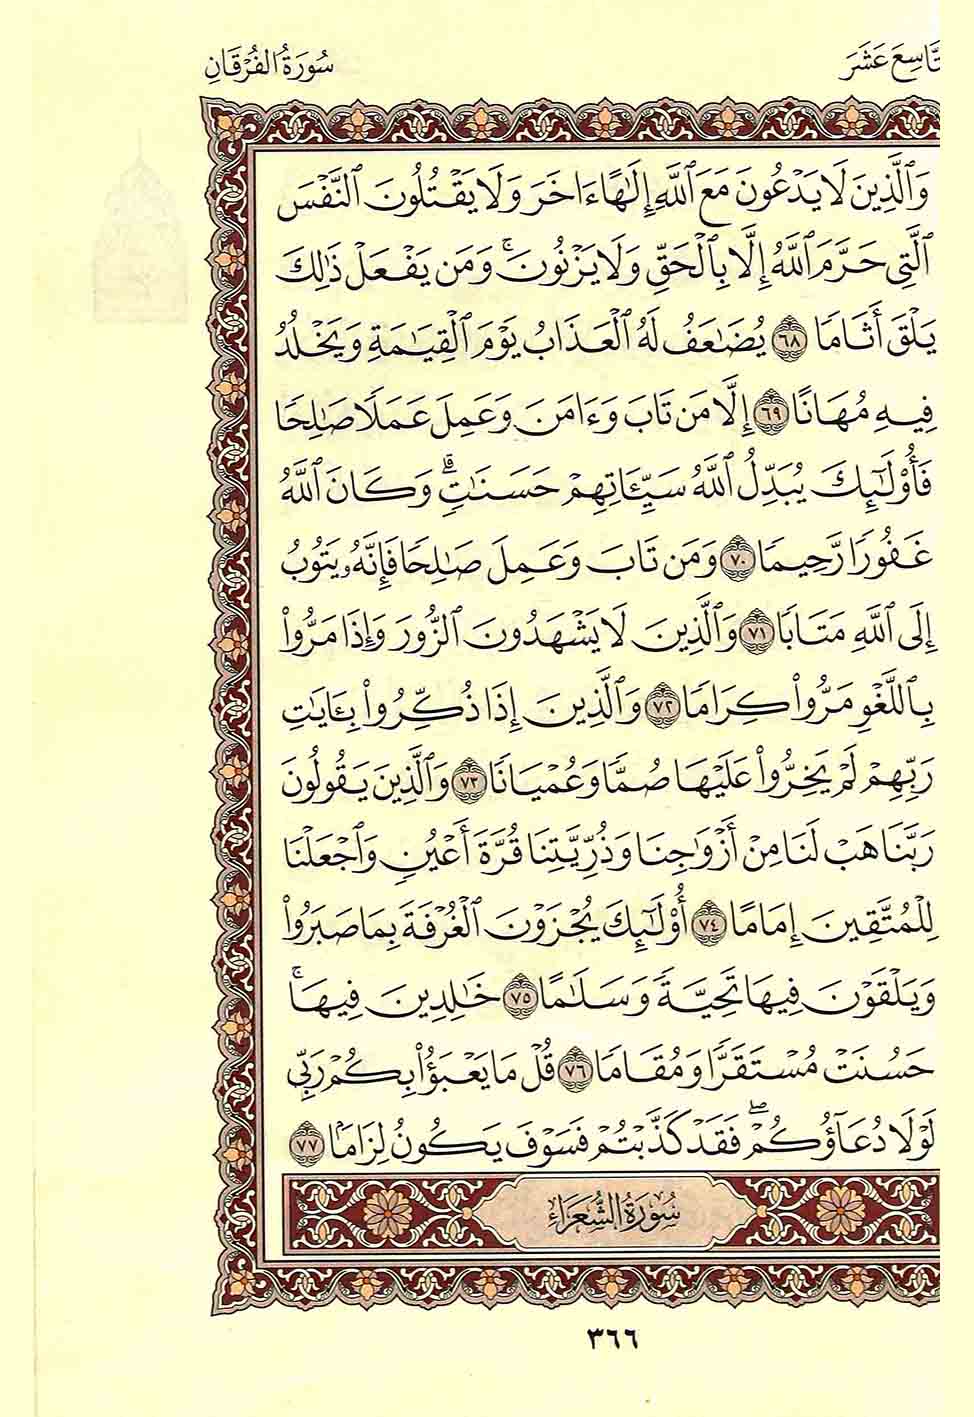 تَّاسِعَ عَشَرَ
سُورَةُ الفُرْقَانِ
وَٱلَّذِينَ لَا يَدْعُونَ مَعَ ٱللَّهِ إِلَٰهًا ءَاخَرَ وَلَا يَقْتُلُونَ ٱلنَّفْسَ
ٱلَّتِي حَرَّمَ ٱللَّهُ إِلَّا بِٱلْحَقِّ وَلَا يَزْنُونَۚ وَمَن يَفْعَلْ ذَٰلِكَ
يَلْقَ أَثَامًا ٦٨ يُضَٰعَفْ لَهُ ٱلْعَذَابُ يَوْمَ ٱلْقِيَٰمَةِ وَيَخْلُدْ
فِيهِ مُهَانًا ٦٩ إِلَّا مَن تَابَ وَءَامَنَ وَعَمِلَ عَمَلًا صَٰلِحًا
فَأُوْلَٰٓئِكَ يُبَدِّلُ ٱللَّهُ سَيِّـَٔاتِهِمْ حَسَنَٰتٍۗ وَكَانَ ٱللَّهُ
غَفُورًا رَّحِيمًا ٧٠ وَمَن تَابَ وَعَمِلَ صَٰلِحًا فَإِنَّهُۥ يَتُوبُ
إِلَى ٱللَّهِ مَتَابًا ٧١ وَٱلَّذِينَ لَا يَشْهَدُونَ ٱلزُّورَ وَإِذَا مَرُّواْ
بِٱللَّغْوِ مَرُّواْ كِرَامًا ٧٢ وَٱلَّذِينَ إِذَا ذُكِّرُواْ بِـَٔايَٰتِ
رَبِّهِمْ لَمْ يَخِرُّواْ عَلَيْهَا صُمًّا وَعُمْيَانًا ٧٣ وَٱلَّذِينَ يَقُولُونَ
رَبَّنَا هَبْ لَنَا مِنْ أَزْوَٰجِنَا وَذُرِّيَّٰتِنَا قُرَّةَ أَعْيُنٍ وَٱجْعَلْنَا
لِلْمُتَّقِينَ إِمَامًا ٧٤ أُوْلَٰٓئِكَ يُجْزَوْنَ ٱلْغُرْفَةَ بِمَا صَبَرُواْ
وَيَلْقَوْنَ فِيهَا تَحِيَّةً وَسَلَٰمًا ٧٥ خَٰلِدِينَ فِيهَاۚ
حَسُنَتْ مُسْتَقَرًّا وَمُقَامًا ٧٦ قُلْ مَا يَعْبَؤُاْ بِكُمْ رَبِّي
لَوْلَا دُعَآؤُكُمْۖ فَقَدْ كَذَّبْتُمْ فَسَوْفَ يَكُونُ لِزَامًۢا ٧٧
سُورَةُ الشُّعَرَاءِ
٣٦٦